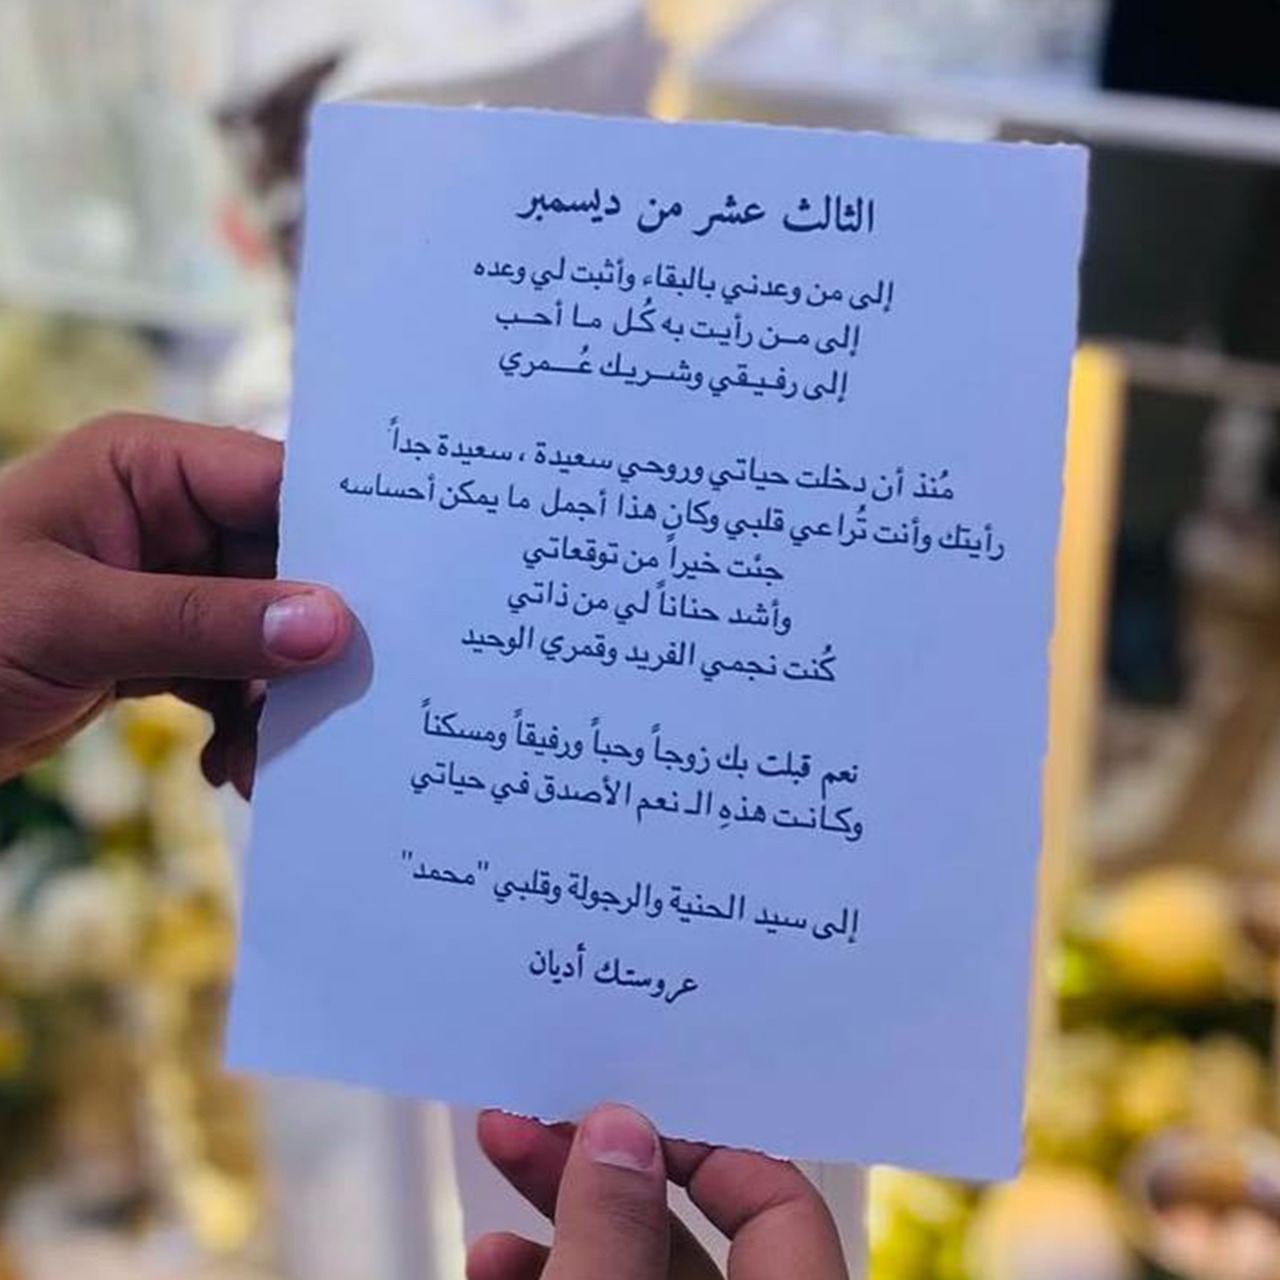 الثالث عشر من ديسمبر
إلى من وعدني بالبقاء وأثبت لي وعده
إلى مـن رأيت به كُل ما أحـب
إلى رفـيـقي وشـريـك عُـــمري
مُنذ أن دخلت حياتي وروحي سعيدة ، سعيدة جداً
رأيتك وأنت تُراعي قلبي وكان هذا أجمل ما يمكن أحساسه
جئت خيراً من توقعاتي
وأشد حناناً لي من ذاتي
كُنت نجمي الفريد وقمري الوحيد
نعم قبلت بك زوجاً وحباً ورفيقاً ومسكناً
وكـانـت هذهِ الـ نعم الأصدق في حياتي
إلى سيد الحنية والرجولة وقلبي "محمد"
عروستك أديان